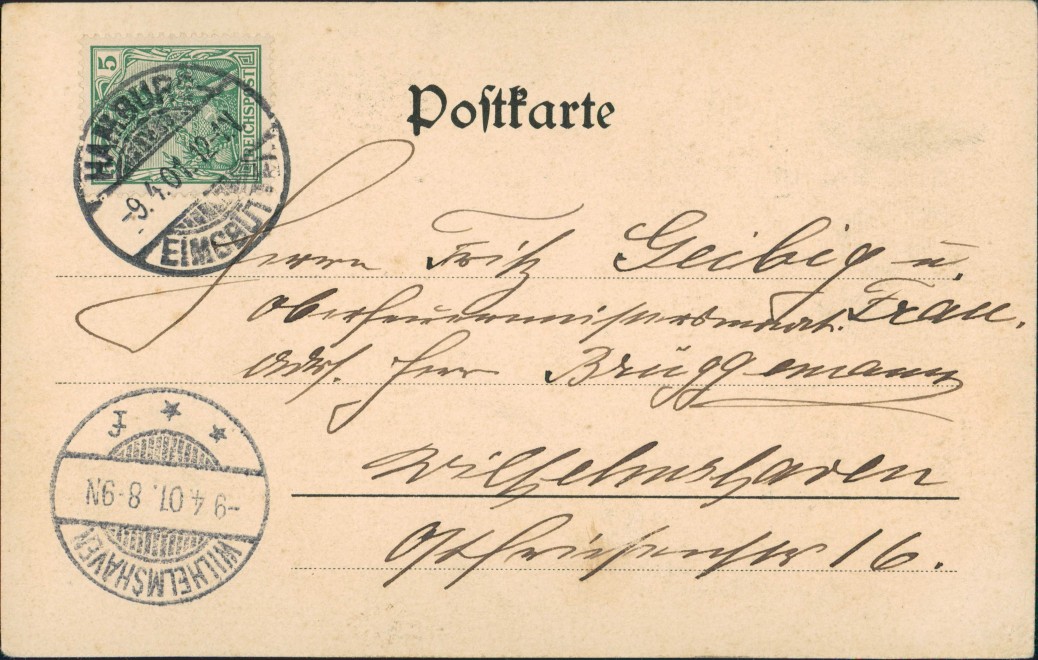 5
REICHSPOST
HAMBURG
-9.4.01.12-1N
EIMSBÜTTEL
Postkarte
Herrn Fritz Geibig u.
Oberfeuermeistersmaat. Frau.
Adr. Herr Brüggemann
Wilhelmshaven
Ostfriesenstr 16.
WILHELMSHAVEN
-9 4 01. 8-9N
* *